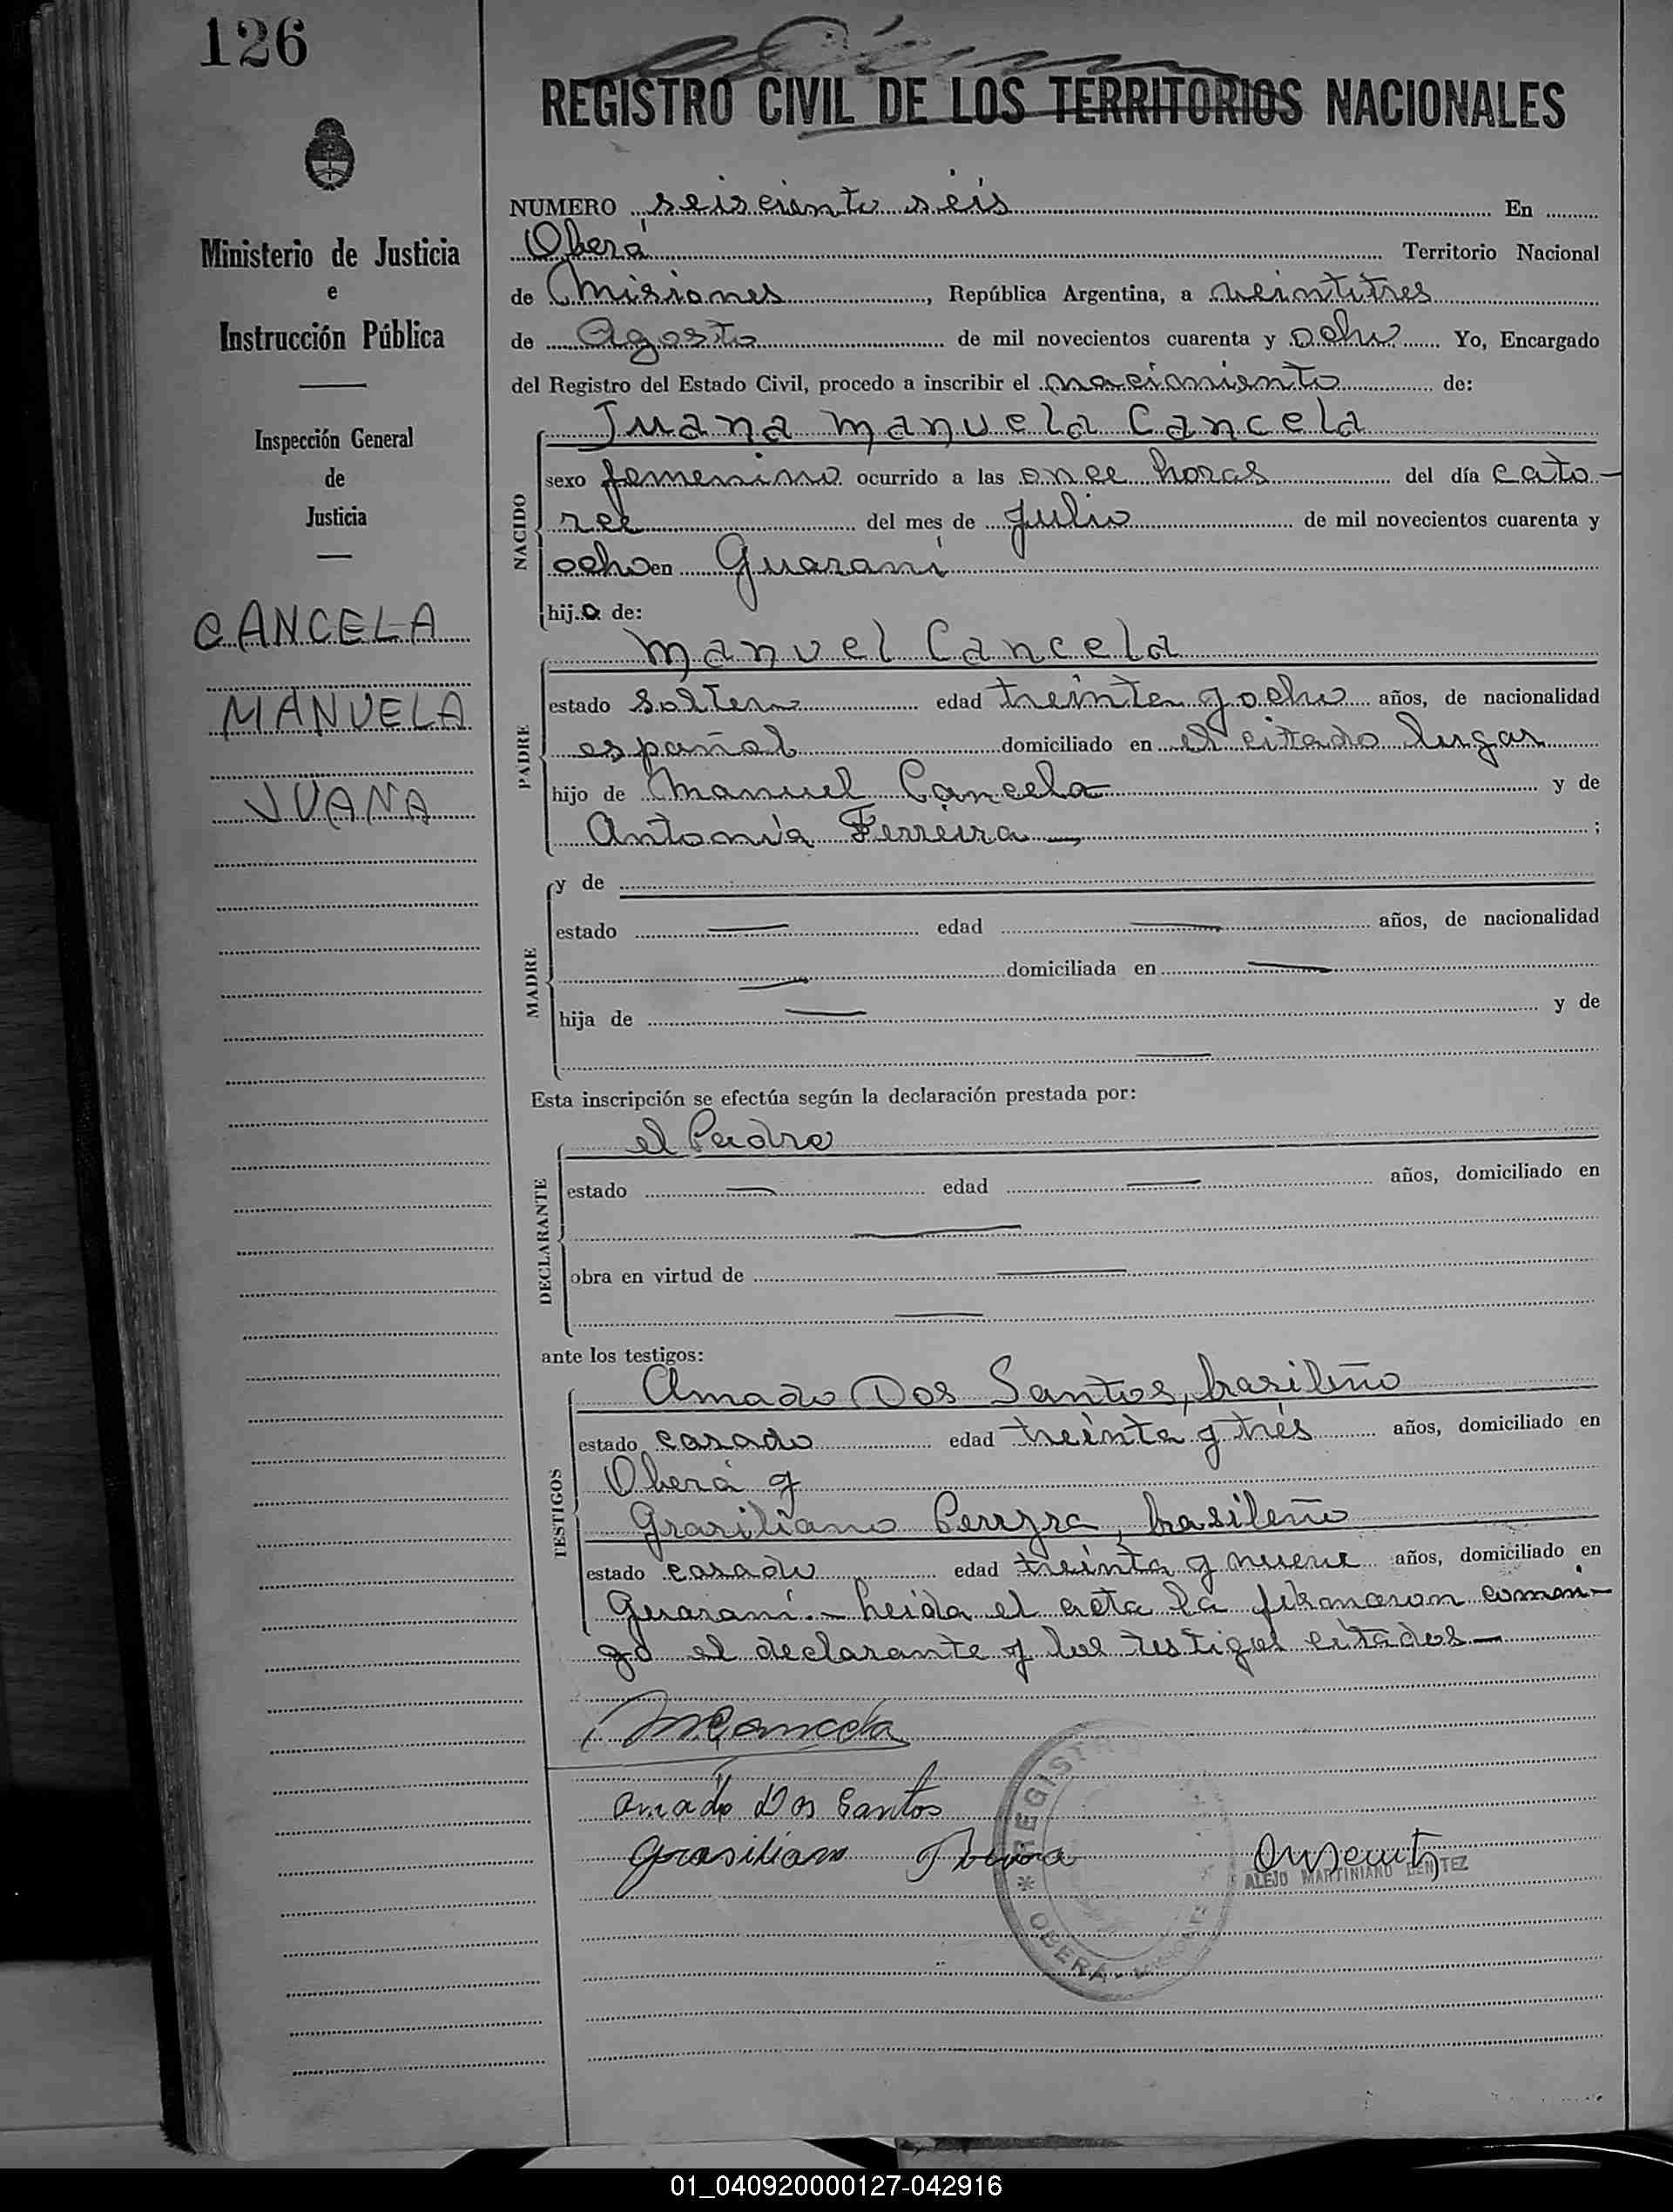 126
REGISTRO CIVIL DE LOS TERRITORIOS NACIONALES
Ministerio de Justicia
e
Instrucción Pública
Inspección General
de
Justicia
CANCELA
MANUELA
JUANA
NUMERO seisciento seis En
Oberá Territorio Nacional
de Misiones, República Argentina, a veintitres
de Agosto de mil novecientos cuarenta y ocho Yo, Encargado
del Registro del Estado Civil, procedo a inscribir el nacimiento de:
Juana Manuela Cancela
NACIDO
sexo femenino ocurrido a las once horas del día cato-
rce del mes de Julio de mil novecientos cuarenta y
ocho en Guaraní
hija de:
Manuel Cancela
PADRE
estado soltero edad treinta y ocho años, de nacionalidad
español domiciliado en el citado lugar
hijo de Manuel Cancela y de
Antonia Ferreira ;
MADRE
y de
estado edad años, de nacionalidad
domiciliada en
hija de y de
Esta inscripción se efectúa según la declaración prestada por:
el Padre
DECLARANTE
estado edad años, domiciliado en
obra en virtud de
ante los testigos:
Amado Dos Santos, brasileño
TESTIGOS
estado casado edad treinta y trés años, domiciliado en
Oberá y
Grasiliano Pereyra, brasileño
estado casado edad treinta y nueve años, domiciliado en
Guaraní.- Leida el acta la firmaron conmi-
go el declarante y los testigos citados-
MCancela
Amado Dos Santos
Grasiliano
REGISTR
OBERÁ
ALEJO MARTINIANO BENITEZ
01_040920000127-042916